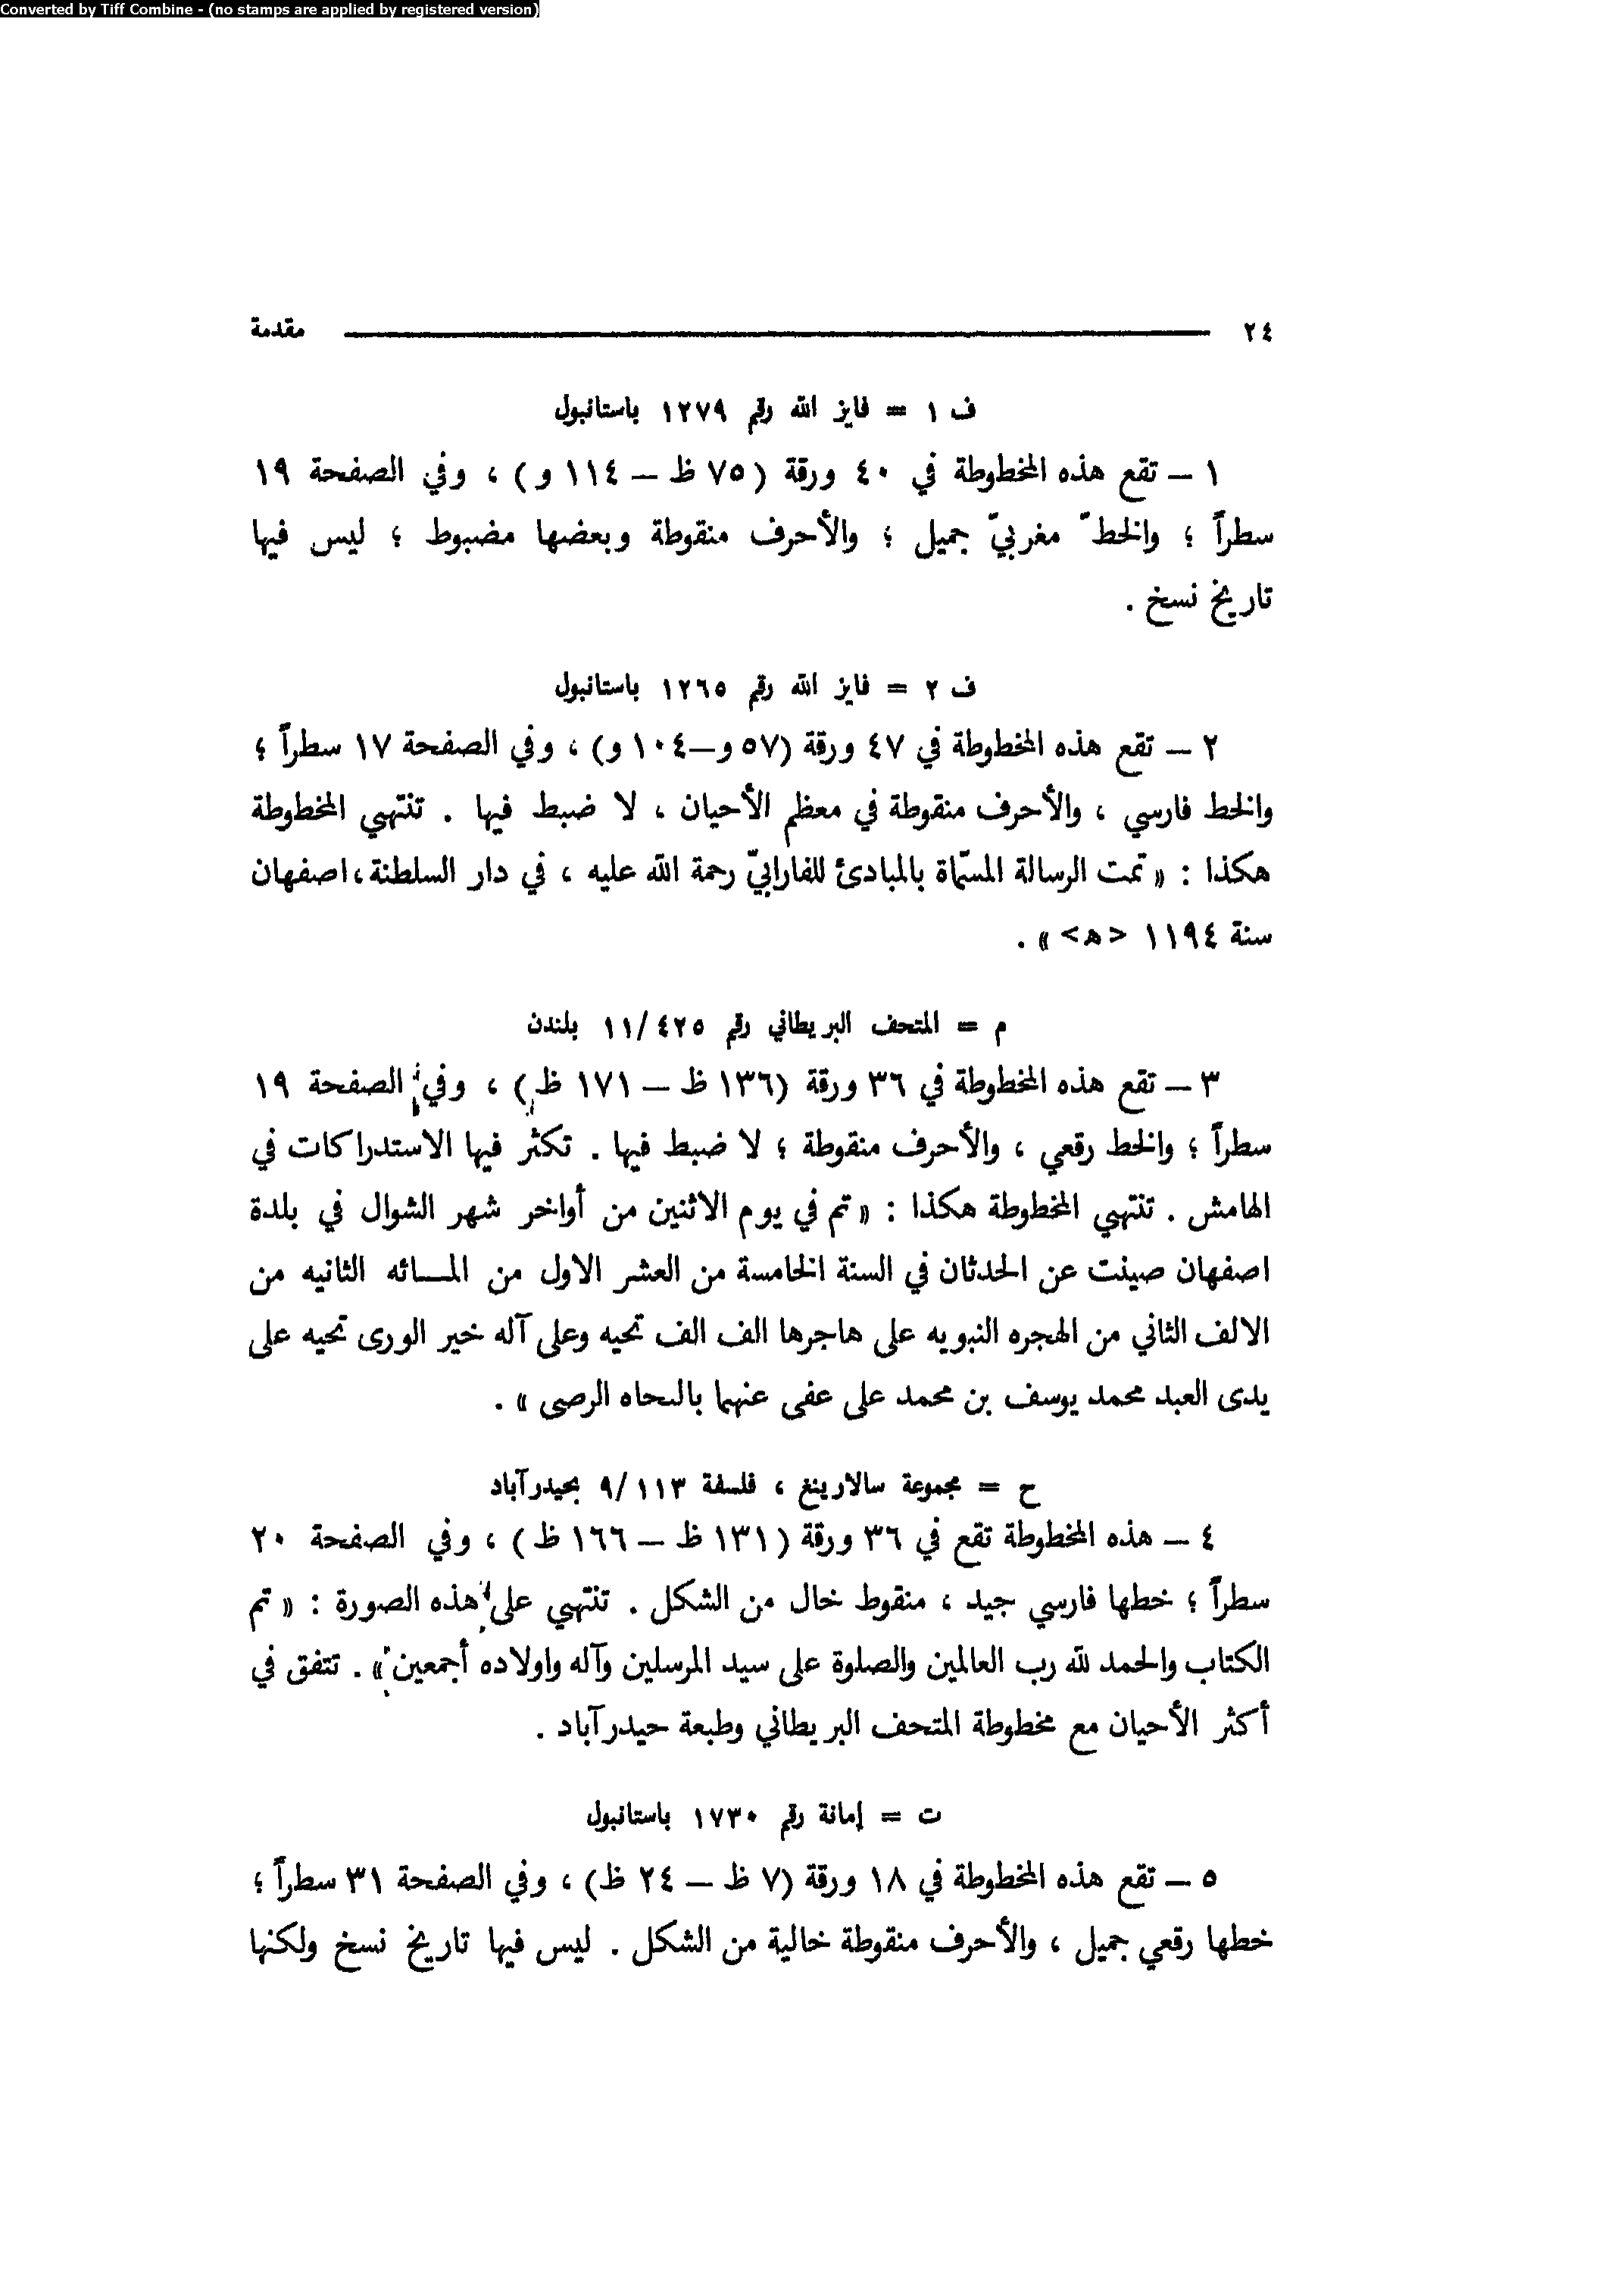 Converted by Tiff Combine - (no stamps are applied by registered version)
٢٤ مقدمة
ف ١ = فايز الله رقم ١٢٧٩ باستانبول
١ – تقع هذه المخطوطة في ٤٠ ورقة ( ٧٥ ظ – ١١٤ و ) ، وفي الصفحة ١٩
سطراً ؛ والخطّ مغربيّ جميل ؛ والأحرف منقوطة وبعضها مضبوط ؛ ليس فيها
تاريخ نسخ .
ف ٢ = فايز الله رقم ١٢٦٥ باستانبول
٢ – تقع هذه المخطوطة في ٤٧ ورقة (٥٧ و–١٠٤ و) ، وفي الصفحة ١٧ سطراً ؛
والخط فارسي ، والأحرف منقوطة في معظم الأحيان ، لا ضبط فيها . تنتهي المخطوطة
هكذا : « تمت الرسالة المسمّاة بالمبادئ للفارابيّ رحمة الله عليه ، في دار السلطنة ، اصفهان
سنة ١١٩٤ <ه> » .
م = المتحف البريطاني رقم ٤٢٥/١١ بلندن
٣ – تقع هذه المخطوطة في ٣٦ ورقة (١٣٦ ظ – ١٧١ ظ) ، وفي الصفحة ١٩
سطراً ؛ والخط رقعي ، والأحرف منقوطة ؛ لا ضبط فيها . تكثر فيها الاستدراكات في
الهامش . تنتهي المخطوطة هكذا : « تم في يوم الاثنين من أواخر شهر الشوال في بلدة
اصفهان صينت عن الحدثان في السنة الخامسة من العشر الاول من المـائه الثانيه من
الالف الثاني من الهجره النبويه على هاجرها الف الف تحيه وعلى آله خير الورى تحيه على
يدى العبد محمد يوسف بن محمد على عفى عنهما بالىحاه الرصى » .
ح = مجموعة سالارينغ ، فلسفة ١١٣/٩ بحيدرآباد
٤ – هذه المخطوطة تقع في ٣٦ ورقة ( ١٣١ ظ – ١٦٦ ظ ) ، وفي الصفحة ٢٠
سطراً ؛ خطها فارسي جيد ، منقوط خال من الشكل . تنتهي على هذه الصورة : « تم
الكتاب والحمد لله رب العالمين والصلوة على سيد المرسلين وآله واولاده أجمعين » . تتفق في
أكثر الأحيان مع مخطوطة المتحف البريطاني وطبعة حيدرآباد .
ت = إمانة رقم ١٧٣٠ باستانبول
٥ – تقع هذه المخطوطة في ١٨ ورقة (٧ ظ – ٢٤ ظ) ، وفي الصفحة ٣١ سطراً ؛
خطها رقعي جميل ، والأحرف منقوطة خالية من الشكل . ليس فيها تاريخ نسخ ولكنها